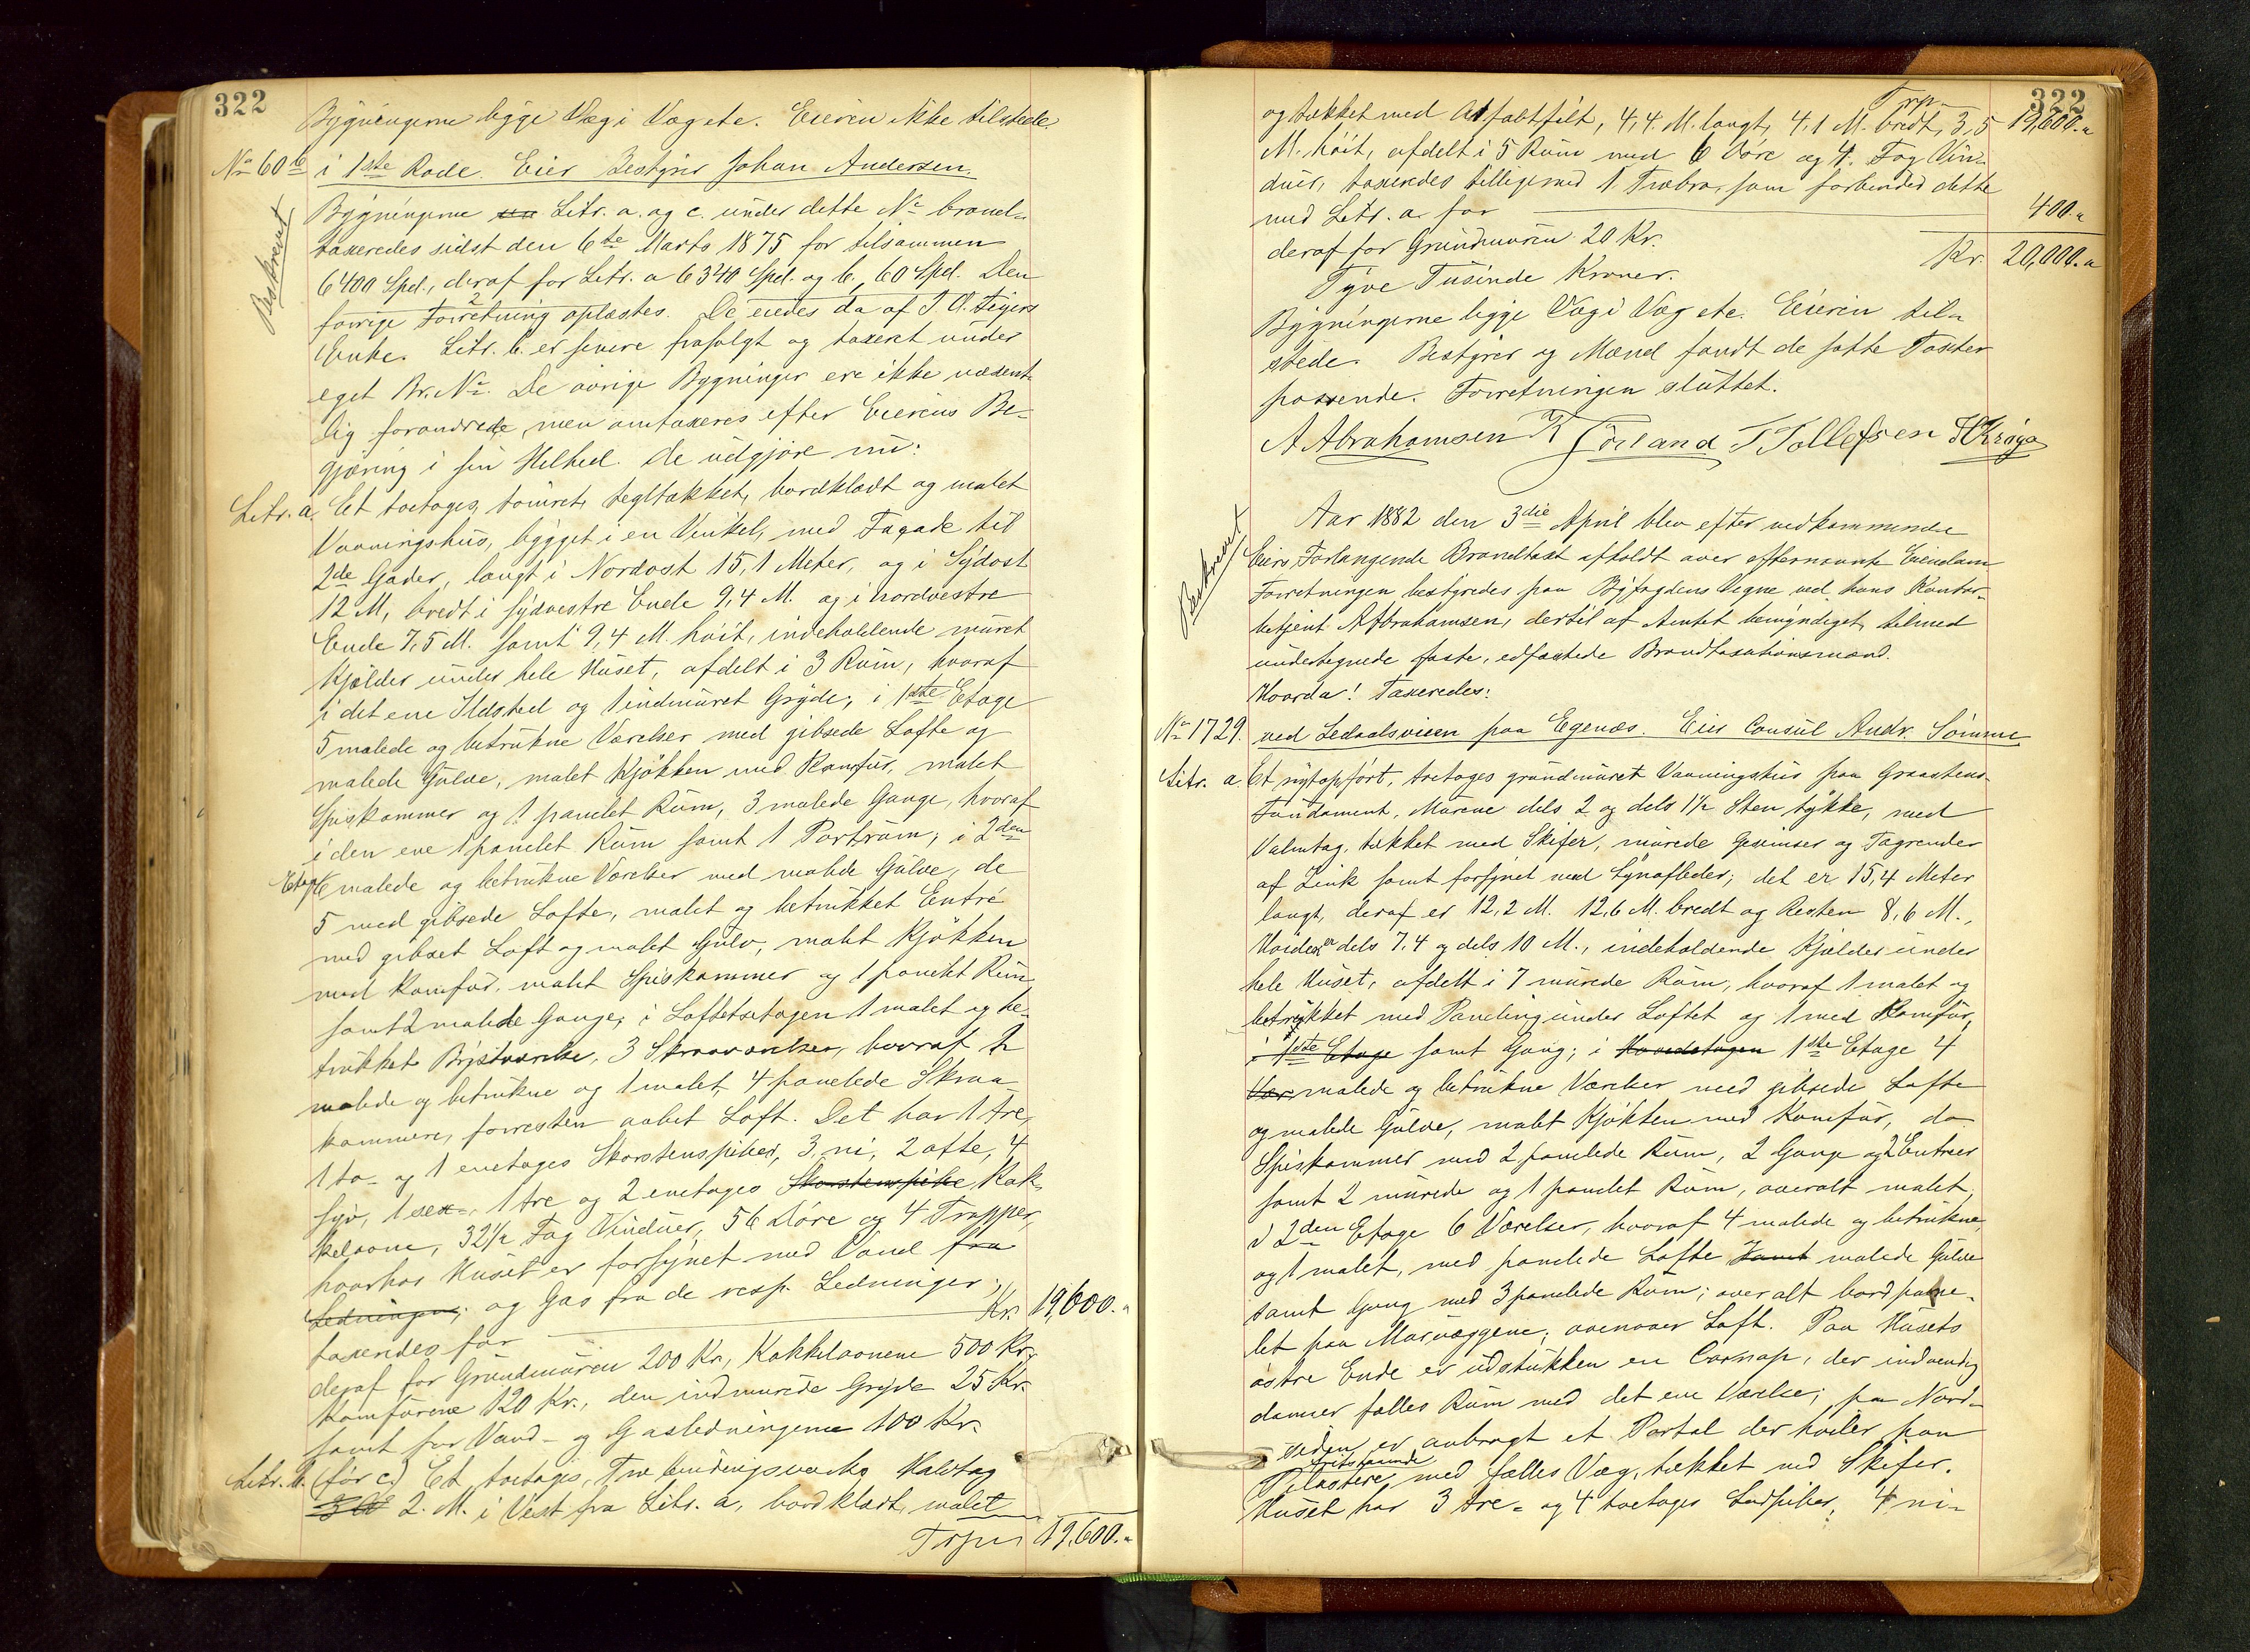 322
Bygningerne ligge Væg i Væg etc. Eieren ikke tilstede.
No 60b i 1ste Rode. Eier Bestyrer Johan Andersen.
Beskrevet
Bygningerne Litr. a. og c. under dette No brand-
taxeredes sidst den 6te Marts 1875 for tilsammen
6400 Spd., deraf for Litr. a 6340 Spd. og b. 60 Spd. Den
forrige Forretning oplæstes. De eiedes da af
Enke. Litr. b. er senere frasolgt og taxeret under
eget Br. No. De øvrige Bygninger ere ikke væsent-
lig forandrede, men omtaxeres efter Eierens Be-
gjæring i sin Helhed. De udgjøre nu:
Litr. a. Et toetages, tømret, tegltækket, bordklædt og malet
Vaaningshus, bygget i en Vinkel, med Façade til
2de Gader, langt i Nordost 15,1 Meter, og i Sydost
12 M, bredt i sydvestre Ende 9,4 M. og i nordvestre
Ende 7,5 M. samt 9,4 M. høit, indeholdende muret
Kjælder under hele Huset, afdelt i 3 Rum, hvoraf
i det ene Ildsted og 1 indmuret Gryde; i 1ste Etage
5 malede og betrukne Værelser med gibsede Lofte og
malede Gulve, malet Kjøkken med Komfur, malet
Spiskammer og 1 panelet Rum, 3 malede Gange, hvoraf
i den ene 1 panelet Rum samt 1 Portrum; i 2den
Etage 6 malede og betrukne Værelser med malede Gulve, de
5 med gibsede Lofte, malet og betrukket Entré
med gibset Loft og malet Gulv, malet Kjøkken
med Komfur, malet Spiskammer og 1 panelet Rum
samt 2 malede Gange; i Loftsetagen 1 malet og be-
trukket Brystværelse, 3 Skraaværelser, hvoraf 2
malede og betrukne og 1 malet, 4 panelede Skraa-
kammere, forresten aabet Loft. Det har 1 tre,
1 to- og 1 enetages Skorstenspiber, 3 ni, 2 otte, 4
syv, 1 sex-, 1 tre og 2 enetages Skorstenspibe Kak-
kelovne, 32½ Fag Vinduer, 56 Døre og 4 Trapper,
hvorhos Huset er forsynet med Vand fra
Ledningen, og Gas fra de resp. Ledninger;
taxeredes for Kr. 19,600.„
deraf for Grundmuren 200 Kr., Kakkelovnene 500 Kr.,
Komfurene 120 Kr., den indmurede Gryde 25 Kr.
samt for Vand- og Gasledningerne 100 Kr.
Litr. b. (før c.) Et toetages, Træ bindingsværks Halvtag
2. M. i Vest fra Litr. a, bordklædt, malet
Trpr. 19,600.„
322
Trp. 19,600.„
og tækket med Asfaltfilt, 4,4. M. langt, 4,1 M. bredt, 3,5
M. høit, afdelt i 5 Rum med 6 Døre og 4. Fag Vin-
duer, taxeredes tilligemed 1 Træbro, som forbinder dette
med Litr. a for 400.„
deraf for Grundmuren 20 Kr. Kr. 20,000.„
Tyve Tusinde Kroner.
Bygningerne ligge Væg i Væg etc. Eieren til-
stede. Bestyrer og Mænd fandt de satte Taxter
passende. Forretningen sluttet.
A Abrahamsen T Tollefsen
Beskrevet
Aar 1882 den 3die April blev efter vedkommende
Eiers Forlangende Brandtaxt afholdt over efternævnte Eiendom
Forretningen bestyredes paa Byfogdens Vegne ved hans Kontor-
betjent A Abrahamsen, dertil af Amtet bemyndiget, tilmed
undertegnede faste, edfæstede Brandtaxationsmænd.
Hvorda! Taxeredes:
No 1729. ved Ledaalsveien paa Egenæs. Eier Consul Andr. Sømme
Litr. a. Et nyt opført, toetages grundmuret Vaaningshus paa Graastens-
Fundament, Murene dels 2 og dels 1½ Sten tykke, med
Valmtag, tækket med Skifer, murede Gesimser og Tagrender
af Zink samt forsynet med Lynafleder; det er 15,4 Meter
langt, deraf er 12,2 M. 12,6 M. bredt og Resten 8,6 M.,
Høiden er dels 7,4 og dels 10 M., indeholdende Kjælder under
hele Huset, afdelt i 7 murede Rum, hvoraf 1 malet og
betrukket med Paneling under Loftet og 1 med Komfur,
i 1ste Etage samt Gang; i Hovedetagen 1ste Etage 4
Vær malede og betrukne Værelser med gibsede Lofte
og malede Gulve, malet Kjøkken med Komfur, do
Spiskammer med 2 panelede Rum, 2 Gange og 2 Entreer
samt 2 murede og 1 panelet Rum, overalt malet,
i 2den Etage 6 Værelser, hvoraf 4 malede og betrukne,
og 1 malet, med panelede Lofte samt malede Gulve
samt Gang med 3 panelede Rum; over alt bordpane-
let paa Murvæggene; ovenover Loft. Paa Husets
østre Ende er udstukken en Carnap, der indvendig
danner fælles Rum med det ene Værelse; paa Nord-
siden er anbragt et Portal der hviler paa
fritstaaende
Pilastere, med fælles Væg, tækket med Skifer.
Huset har 3 tre- og 4 toetages Ludpiber, 4 ni-